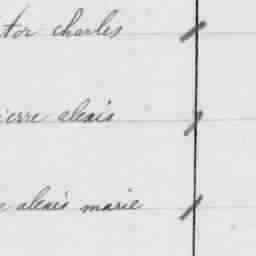 tor charles
ierre alexis
e alexis marie